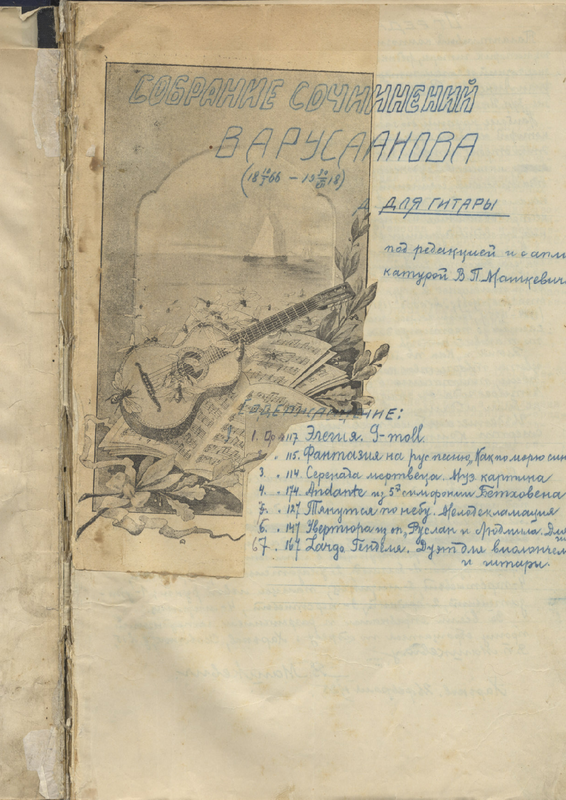 СОБРАНИЕ СОЧИНЕНИЙ
В А РУСАНОВА
(18 66 – 19 18)
ДЛЯ ГИТАРЫ
под редакцией и с апли
катурой В П. Машкевич
СОДЕРЖАНИЕ:
1. Ор 117 Элегия. G-moll.
" 115. Фантазия на рус песню „Как по морю син
3. " 114. Серенада мертвеца. Муз картина
4. " 174 Andante из 5й симфонии Бетховена
5. " 127 Тянутся по небу. Мелодекламация
6. " 147 Увертюра из оп. „Руслан и Людмила.
7. " 167 Largo Генделя. Дуэт для виолончел
и гитары.